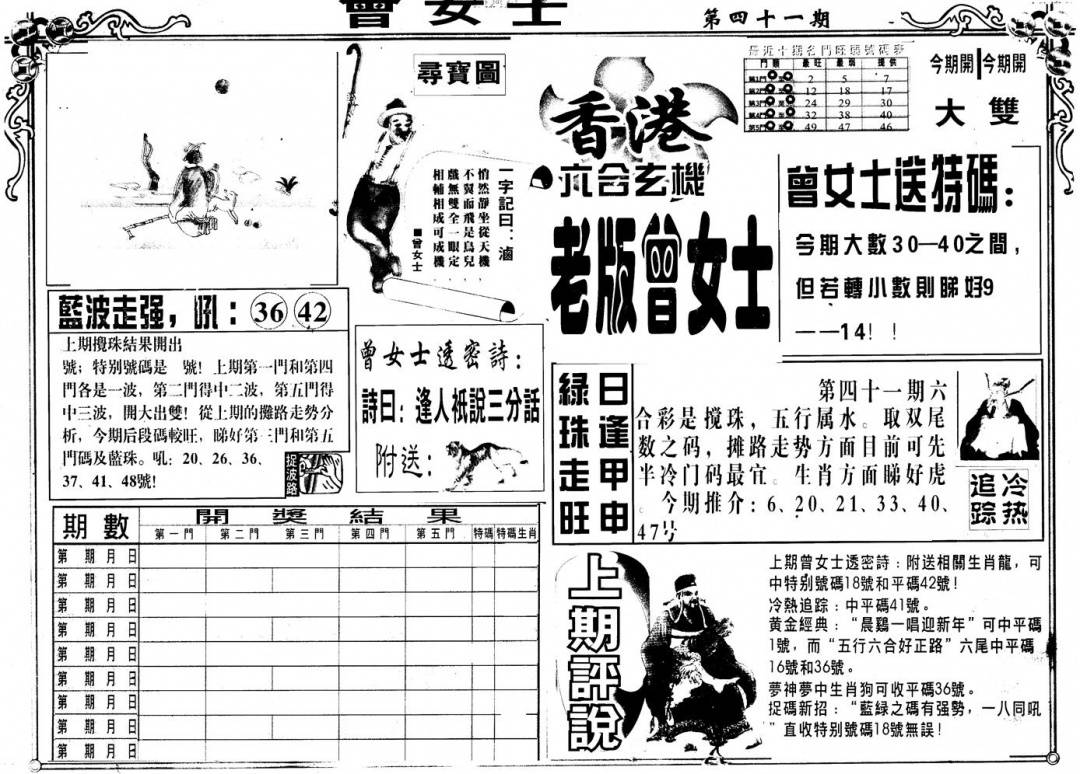 曾女士
第四十一期
尋寶圖
一字記曰：滷
悄然靜坐從天機
不翼而飛是鳥兒
戲無雙全一眼定
相輔相成可成機
■曾女士
香港
六合玄機
老版曾女士
最近十期各門旺弱號碼表
門類 最旺 最弱 提供
第1門 2 5 7
第2門 12 18 17
第3門 24 29 30
第4門 32 38 40
第5門 49 47 46
今期開 今期開
大 雙
曾女士送特碼：
今期大數30—40之間，
但若轉小數則睇好9
——14！！
藍波走强，吼：36 42
上期攪珠結果開出
號；特別號碼是 號！上期第一門和第四
門各是一波，第二門得中二波，第五門得
中三波，開大出雙！從上期的攤路走勢分
析，今期后段碼較旺，睇好第三門和第五
門碼及藍珠。吼：20、26、36、
37、41、48號！
捉波路
曾女士透密詩：
詩曰：逢人衹說三分話
附送：
綠珠走旺
日逢甲申
第四十一期六
合彩是搅珠，五行属水。取双尾
数之码，摊路走势方面目前可先
半冷门码最宜。生肖方面睇好虎
。今期推介：6、20、21、33、40、
47号
冷热
追踪
期數 開獎結果
第一門 第二門 第三門 第四門 第五門 特碼 特碼生肖
第 期 月 日
第 期 月 日
第 期 月 日
第 期 月 日
第 期 月 日
第 期 月 日
第 期 月 日
第 期 月 日
第 期 月 日
上期評說
上期曾女士透密詩：附送相關生肖龍，可
中特別號碼18號和平碼42號！
冷熱追踪：中平碼41號。
黄金經典：“晨鷄一唱迎新年”可中平碼
1號，而“五行六合好正路”六尾中平碼
16號和36號。
夢神夢中生肖狗可收平碼36號。
捉碼新招：“藍綠之碼有强勢，一八同吼
”直收特别號碼18號無誤！